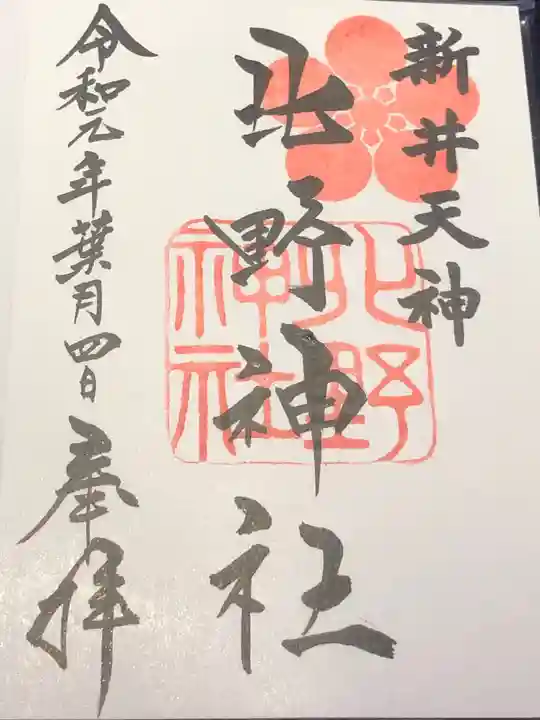 新井天神
北野神社
令和元年葉月四日
奉拝
北野神社